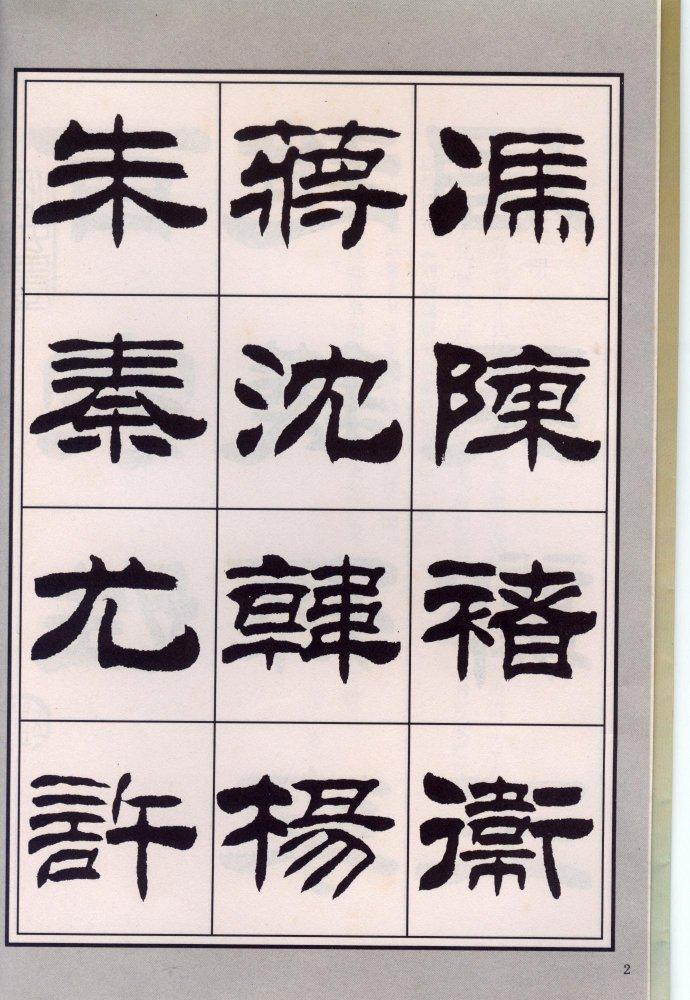 馮陳褚衞
蔣沈韓楊
朱秦尤許
2